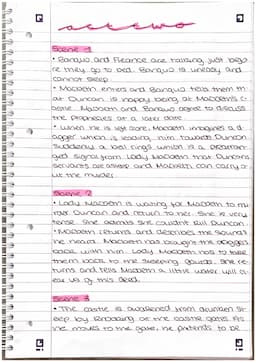 act two
Scene 1
• Banquo and Fleance are talking just befo
re they go to bed. Banquo is uneasy and
cannot sleep
• Macbeth enters and Banquo tells them th
at Duncan is happy being at Macbeth's c
astle. Macbeth and Banquo agree to discuss
the prophecies at a later date
• When he is left alone, Macbeth imagines a d
agger which is leading him towards Duncan
Suddenly a bell rings which is a prearran
ged signal from Lady Macbeth that Duncan's
servants are asleep and Macbeth can carry o
ut the murder
Scene 2
• Lady Macbeth is waiting for Macbeth to mu
rder Duncan and return to her. She is very
tense. She admits she couldn't kill Duncan.
• Macbeth returns and describes the sounds
he heard. Macbeth has brought the daggers
back with him. Lady Macbeth has to take
them back to the sleeping guards. She re
turns and tells Macbeth a little water will cl
ear us of this deed.
Scene 3
• The castle is awakened from drunken sl
eep by knocking at the castle gate. As
he moves to the gate, he pretends to be